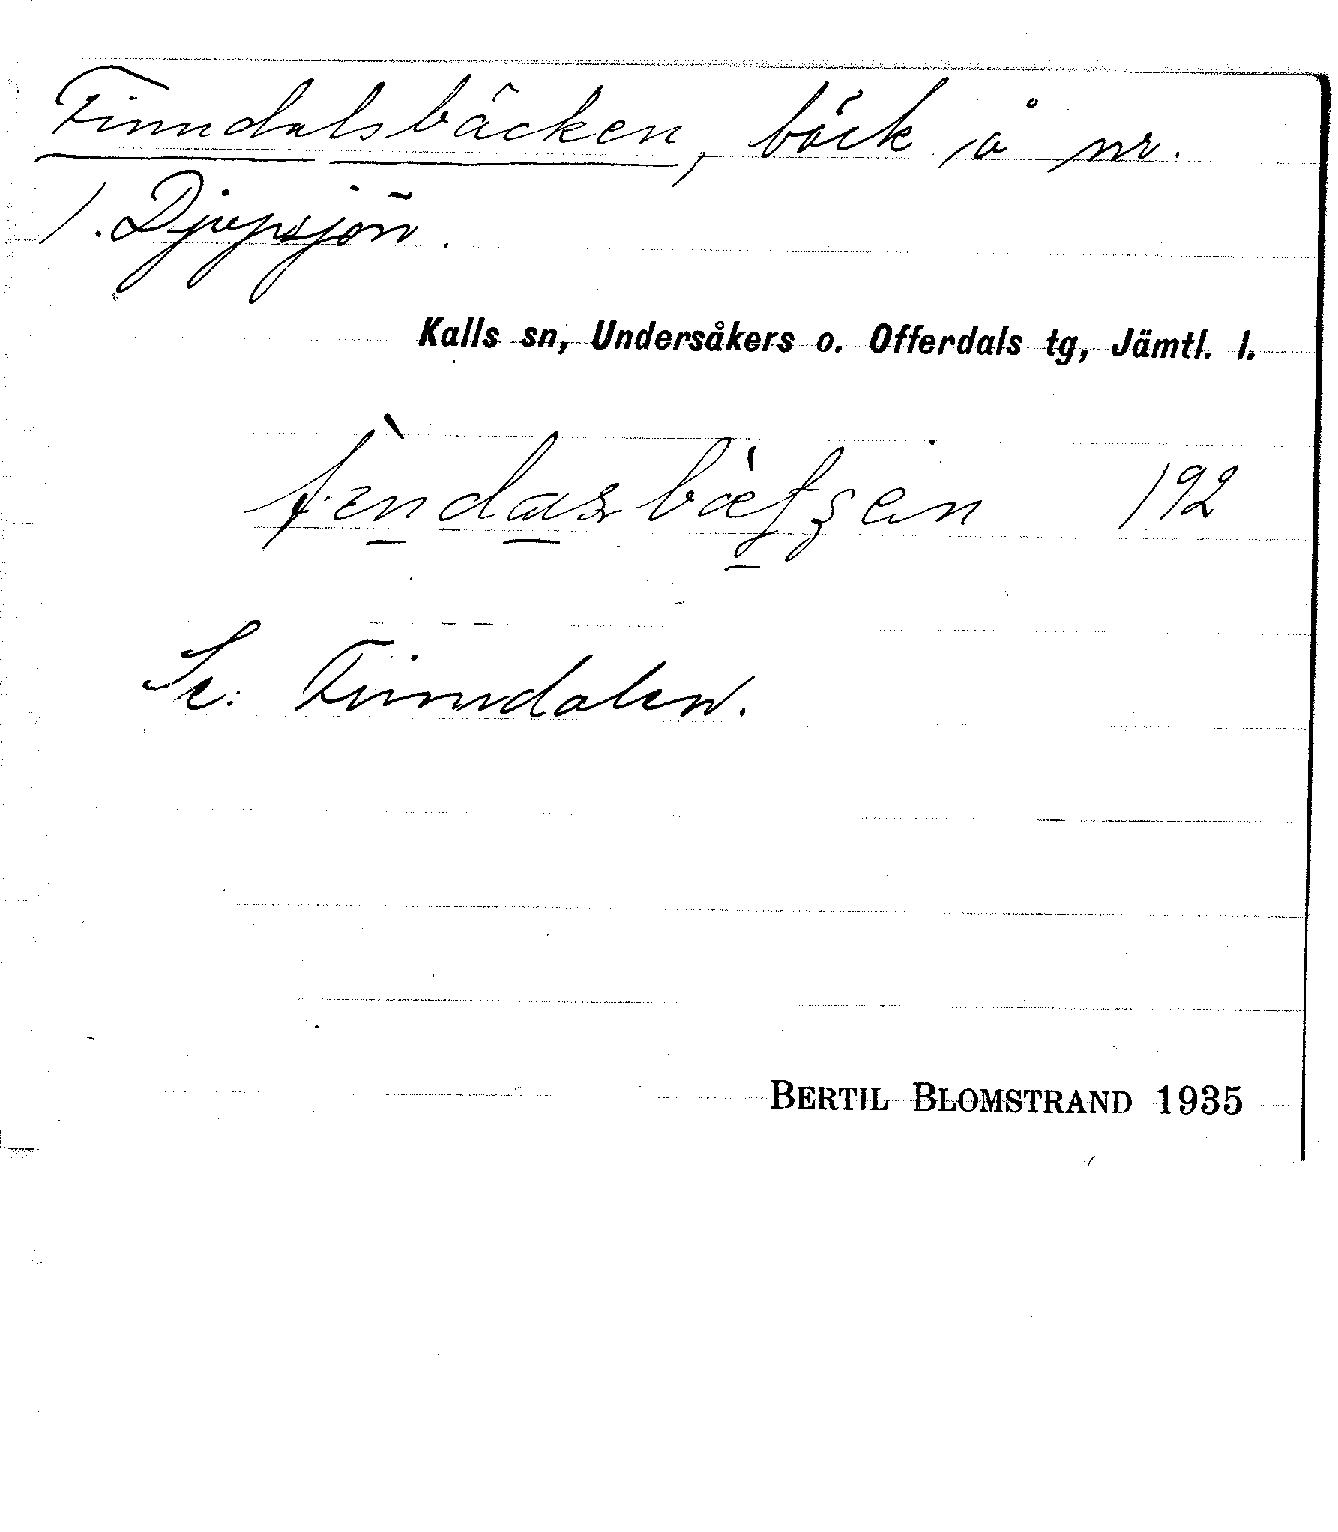 Finndalsbäcken, bäck å nr.
1. Djupsjön.
Kalls sn, Undersåkers o. Offerdals tg, Jämtl. l.
192
Se: Finndalen.
BERTIL BLOMSTRAND 1935